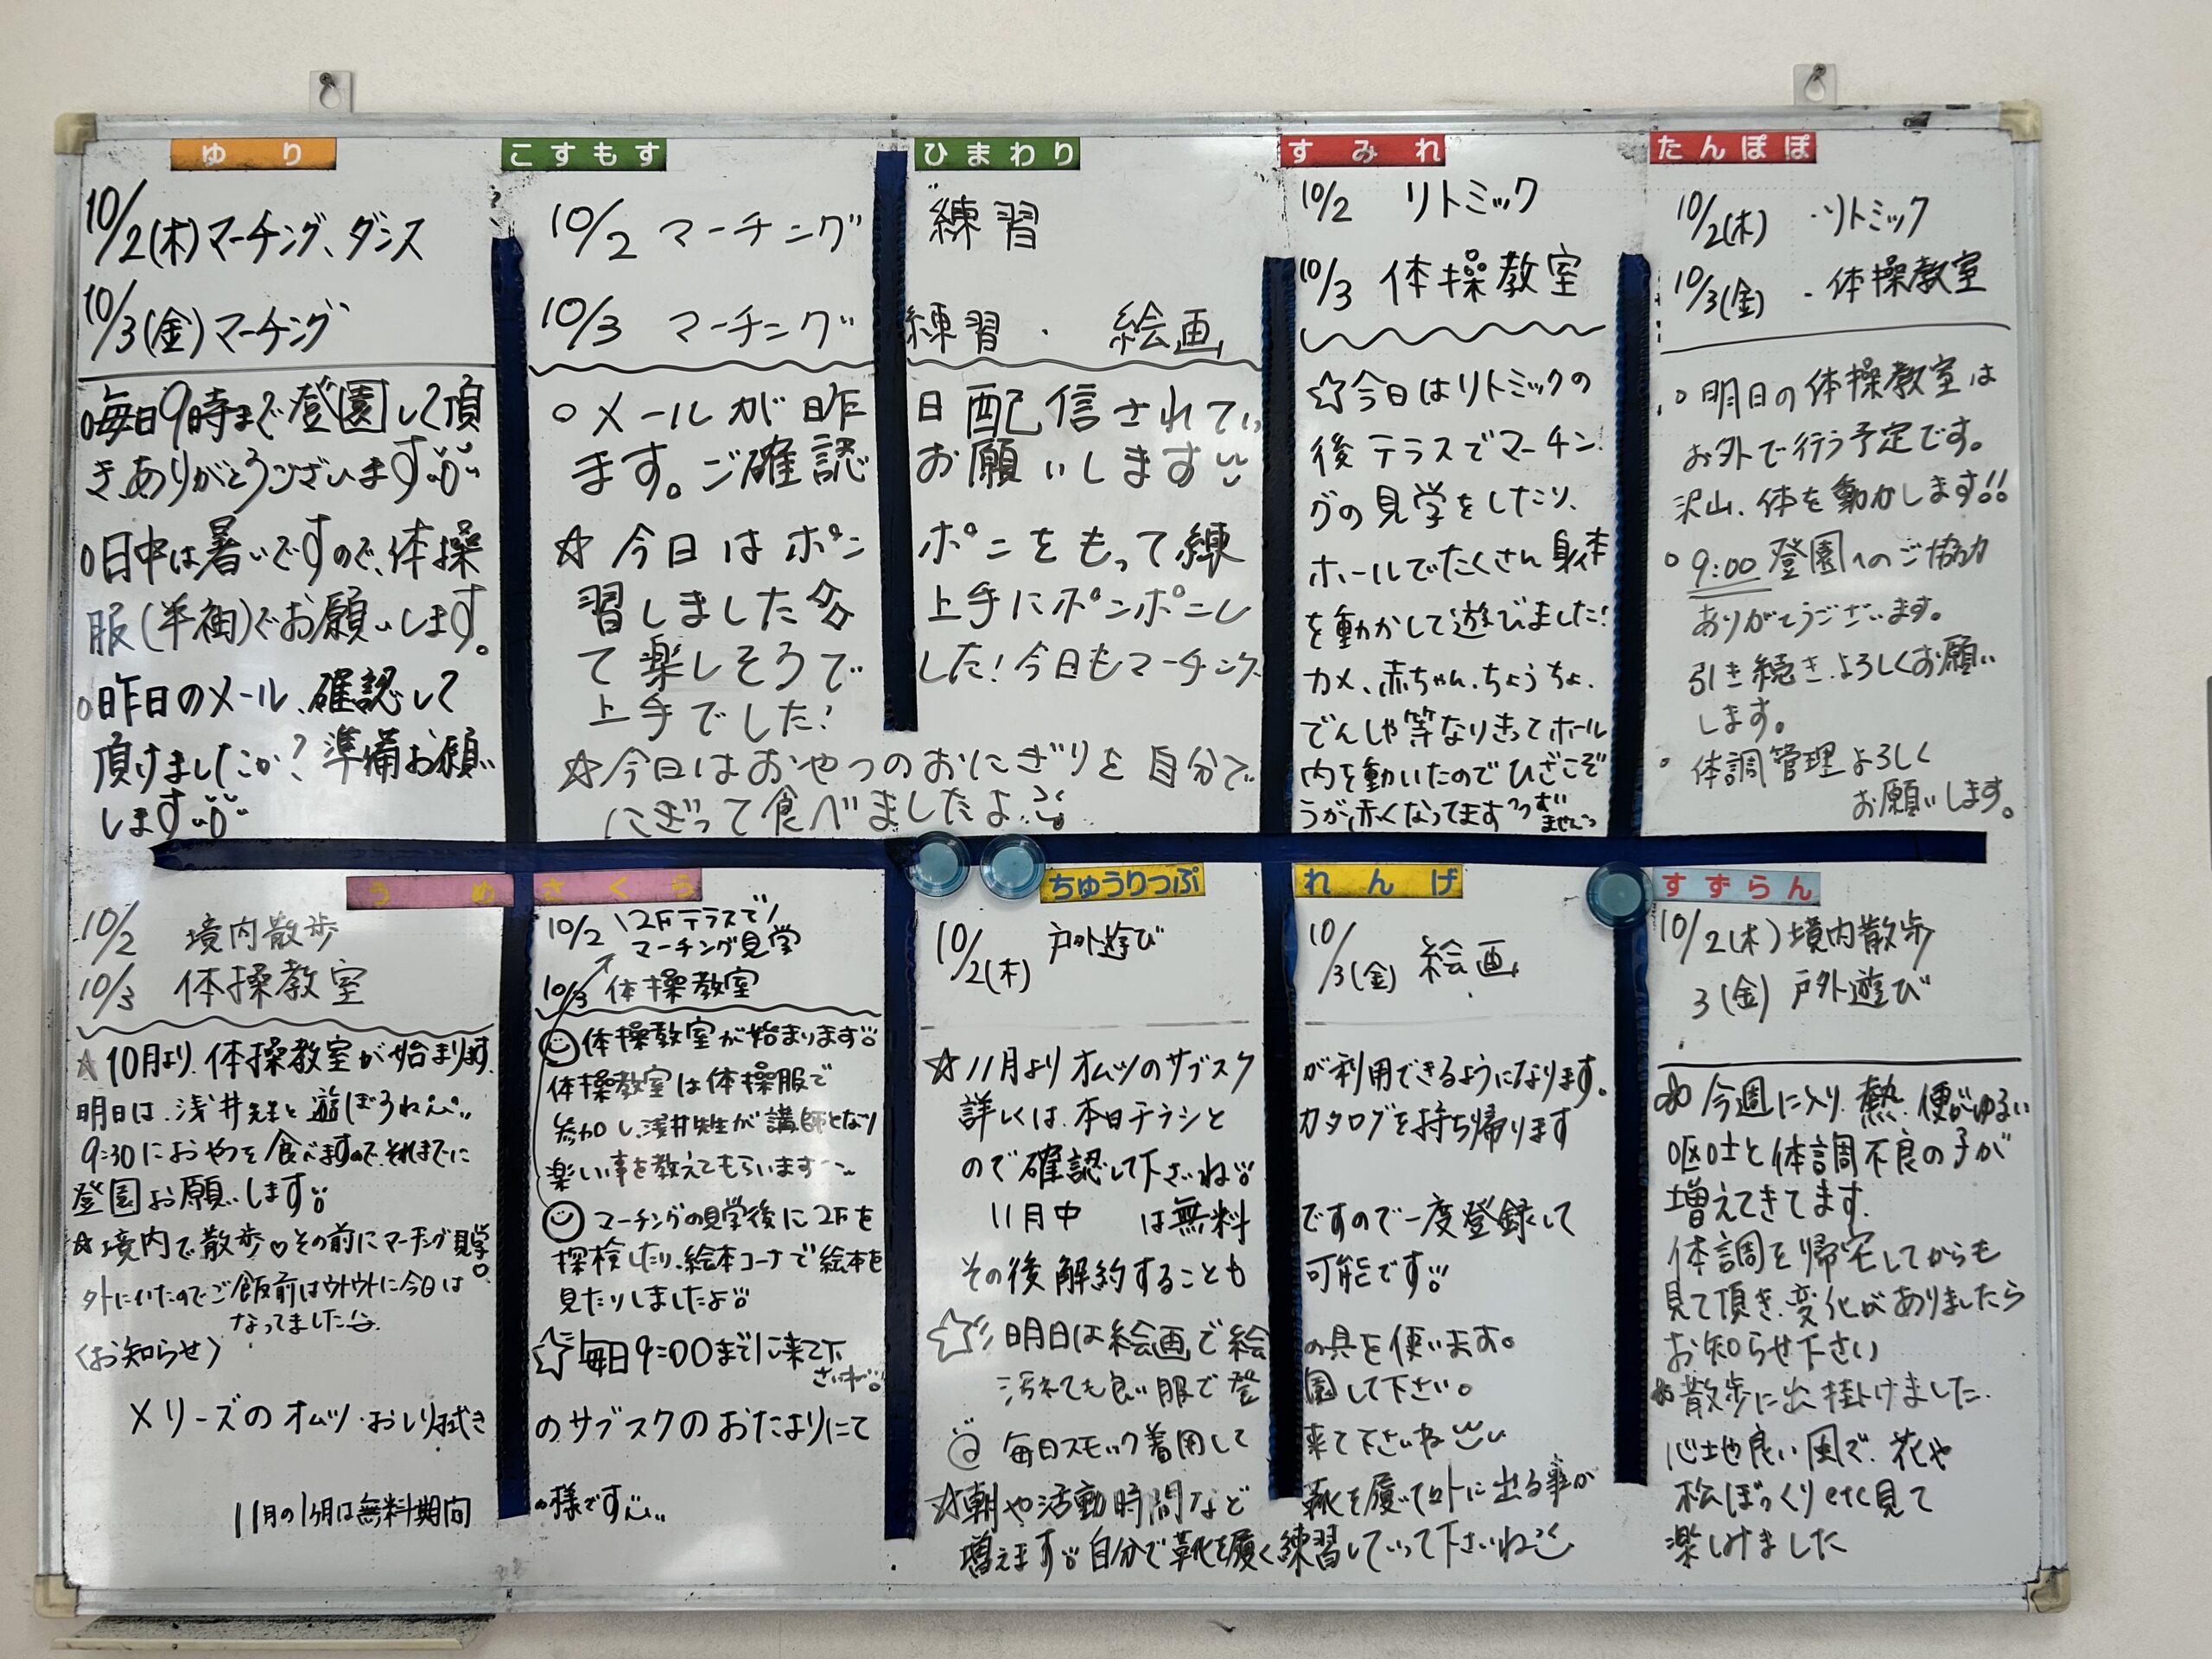 ゆり
10/2(木)マーチング、ダンス
10/3(金)マーチング
○毎日9時まで登園して頂
きありがとうございます
○日中は暑いですので、体操
服(半袖)でお願いします。
○昨日のメール、確認して
頂けましたか？準備お願い
します
こすもす ひまわり
10/2 マーチング 練習
10/3 マーチング 練習・絵画
○メールが昨日配信されてい
ます。ご確認お願いします
☆今日はポンポンをもって練
習しました☆上手にポンポンし
て楽しそうでした！今日もマーチング
上手でした！
☆今日はおやつのおにぎりを自分で
にぎって食べましたよ
すみれ
10/2 リトミック
10/3 体操教室
☆今日はリトミックの
後テラスでマーチン
グの見学をしたり、
ホールでたくさん身体
を動かして遊びました！
カメ、赤ちゃん、ちょうちょ、
でんしゃ等なりきってホール
内を動いたのでひざこぞ
うが赤くなってます すいません
たんぽぽ
10/2(木)・リトミック
10/3(金)・体操教室
○明日の体操教室は
お外で行う予定です。
沢山、体を動かします!!
○9:00登園へのご協力
ありがとうございます。
引き続きよろしくお願い
します。
○体調管理よろしく
お願いします。
うめ
10/2 境内散歩
10/3 体操教室
☆10月より、体操教室が始まります
明日は、浅井先生と遊ぼうね
9:30におやつを食べますので、それまでに
登園お願いします
☆境内で散歩♡その前にマーチング見学
外にいたのでご飯前はウトウトに今日は
なってました
さくら
10/2 2Fテラスで
マーチング見学
10/3 体操教室
体操教室が始まります
体操教室は体操服で
参加し、浅井先生が講師となり
楽しい事を教えてもらいます〜
マーチングの見学後に2Fを
探検したり、絵本コーナーで絵本を
見たりしましたよ
☆毎日9:00までに来て下
さいね
〈お知らせ〉
メリーズのオムツ・おしり拭きのサブスクのおたよりにて
11月の1ヶ月は無料期間の様です
ちゅうりっぷ れんげ
10/2(木) 戸外遊び 10/3(金) 絵画
☆11月よりオムツのサブスクが利用できるようになります。
詳しくは、本日チラシとカタログを持ち帰ります
ので確認して下さいね
11月中は無料ですので一度登録して
その後解約することも可能です
☆明日は絵画で絵の具を使います。
汚れても良い服で登園して下さい。
毎日スモック着用して来て下さいね
☆朝や活動時間など靴を履いて外に出る事が
増えます 自分で靴を履く練習していって下さいね
すずらん
10/2(木)境内散歩
3(金)戸外遊び
今週に入り、熱、便がゆるい
嘔吐と体調不良の子が
増えてきてます。
体調を帰宅してからも
見て頂き、変化がありましたら
お知らせ下さい
散歩に出掛けました。
心地良い風で、花や
松ぼっくりetc見て
楽しみました